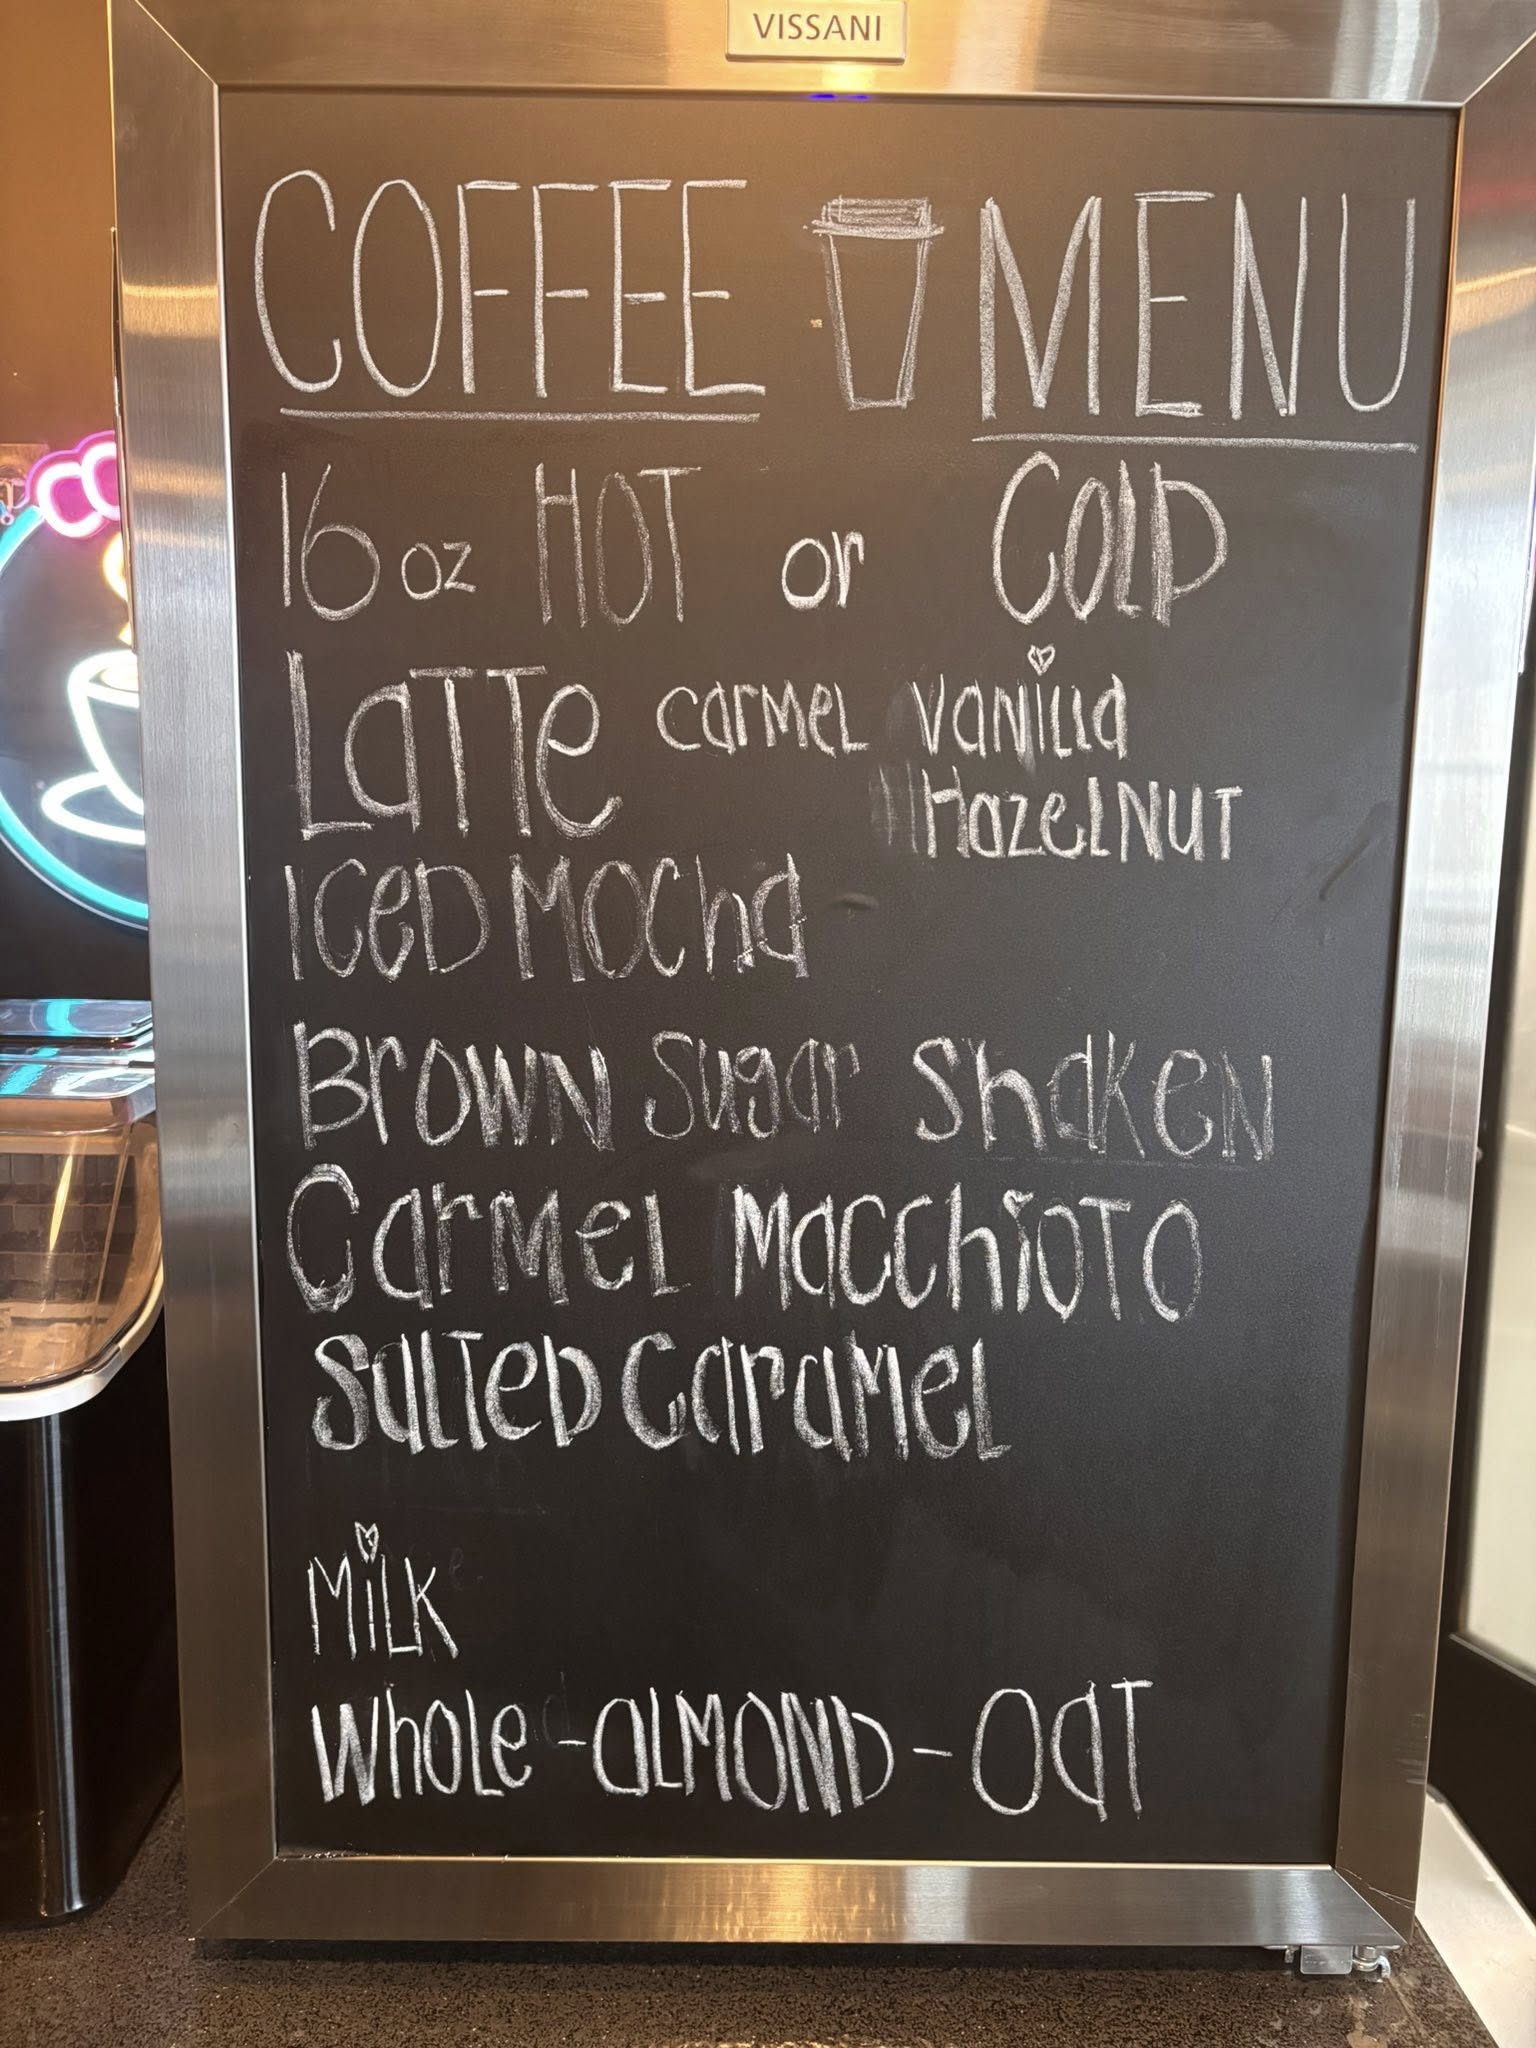 VISSANI
COFFEE MENU
16 oz HOT or COLD
LaTTe carmel vanilla
HazelNUT
ICeD MOCha
Brown Sugar Shaken
Carmel Macchioto
Salted Caramel
MiLK
Whole - aLMOND - OaT